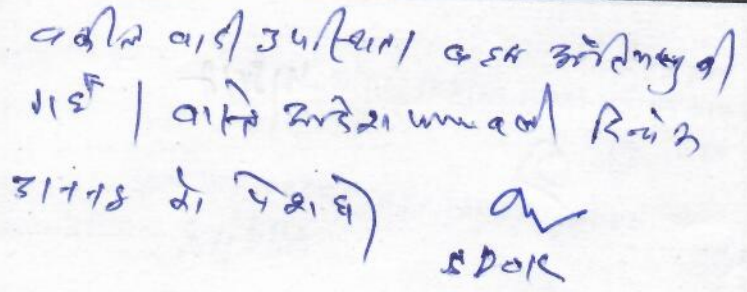 वकील वादी उपस्थित। बहस अंतिम सुनी
गई। वास्ते आदेश पत्रावली दिनांक
3/1/18 को पेश हो
SDOK